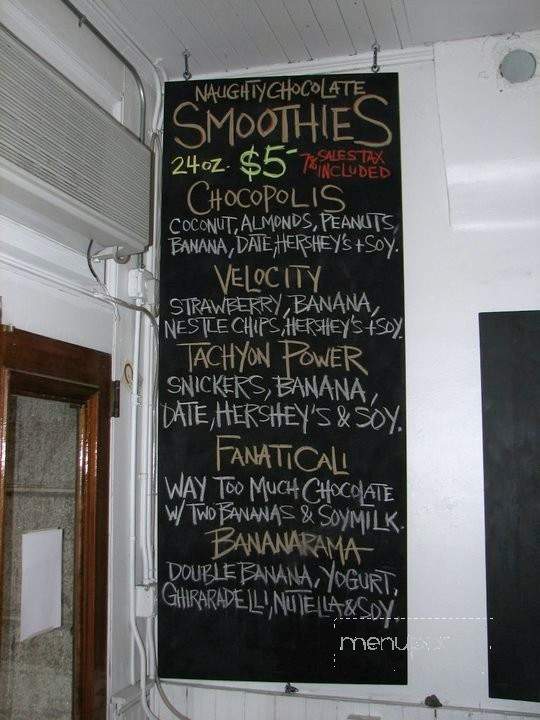 NAUGHTY CHOCOLATE
SMOOTHIES
24 OZ. $5- 7% SALES TAX INCLUDED
CHOCOPOLIS
COCONUT, ALMONDS, PEANUTS,
BANANA, DATE, HERSHEY'S + SOY.
VELOCITY
STRAWBERRY, BANANA,
NESTLE CHIPS, HERSHEY'S + SOY.
TACHYON POWER
SNICKERS, BANANA,
DATE, HERSHEY'S & SOY.
FANATICALI
WAY TOO MUCH CHOCOLATE
W/ TWO BANANAS & SOYMILK.
BANANARAMA
DOUBLE BANANA, YOGURT,
GHIRARADELLI, NUTELLA & SOY.